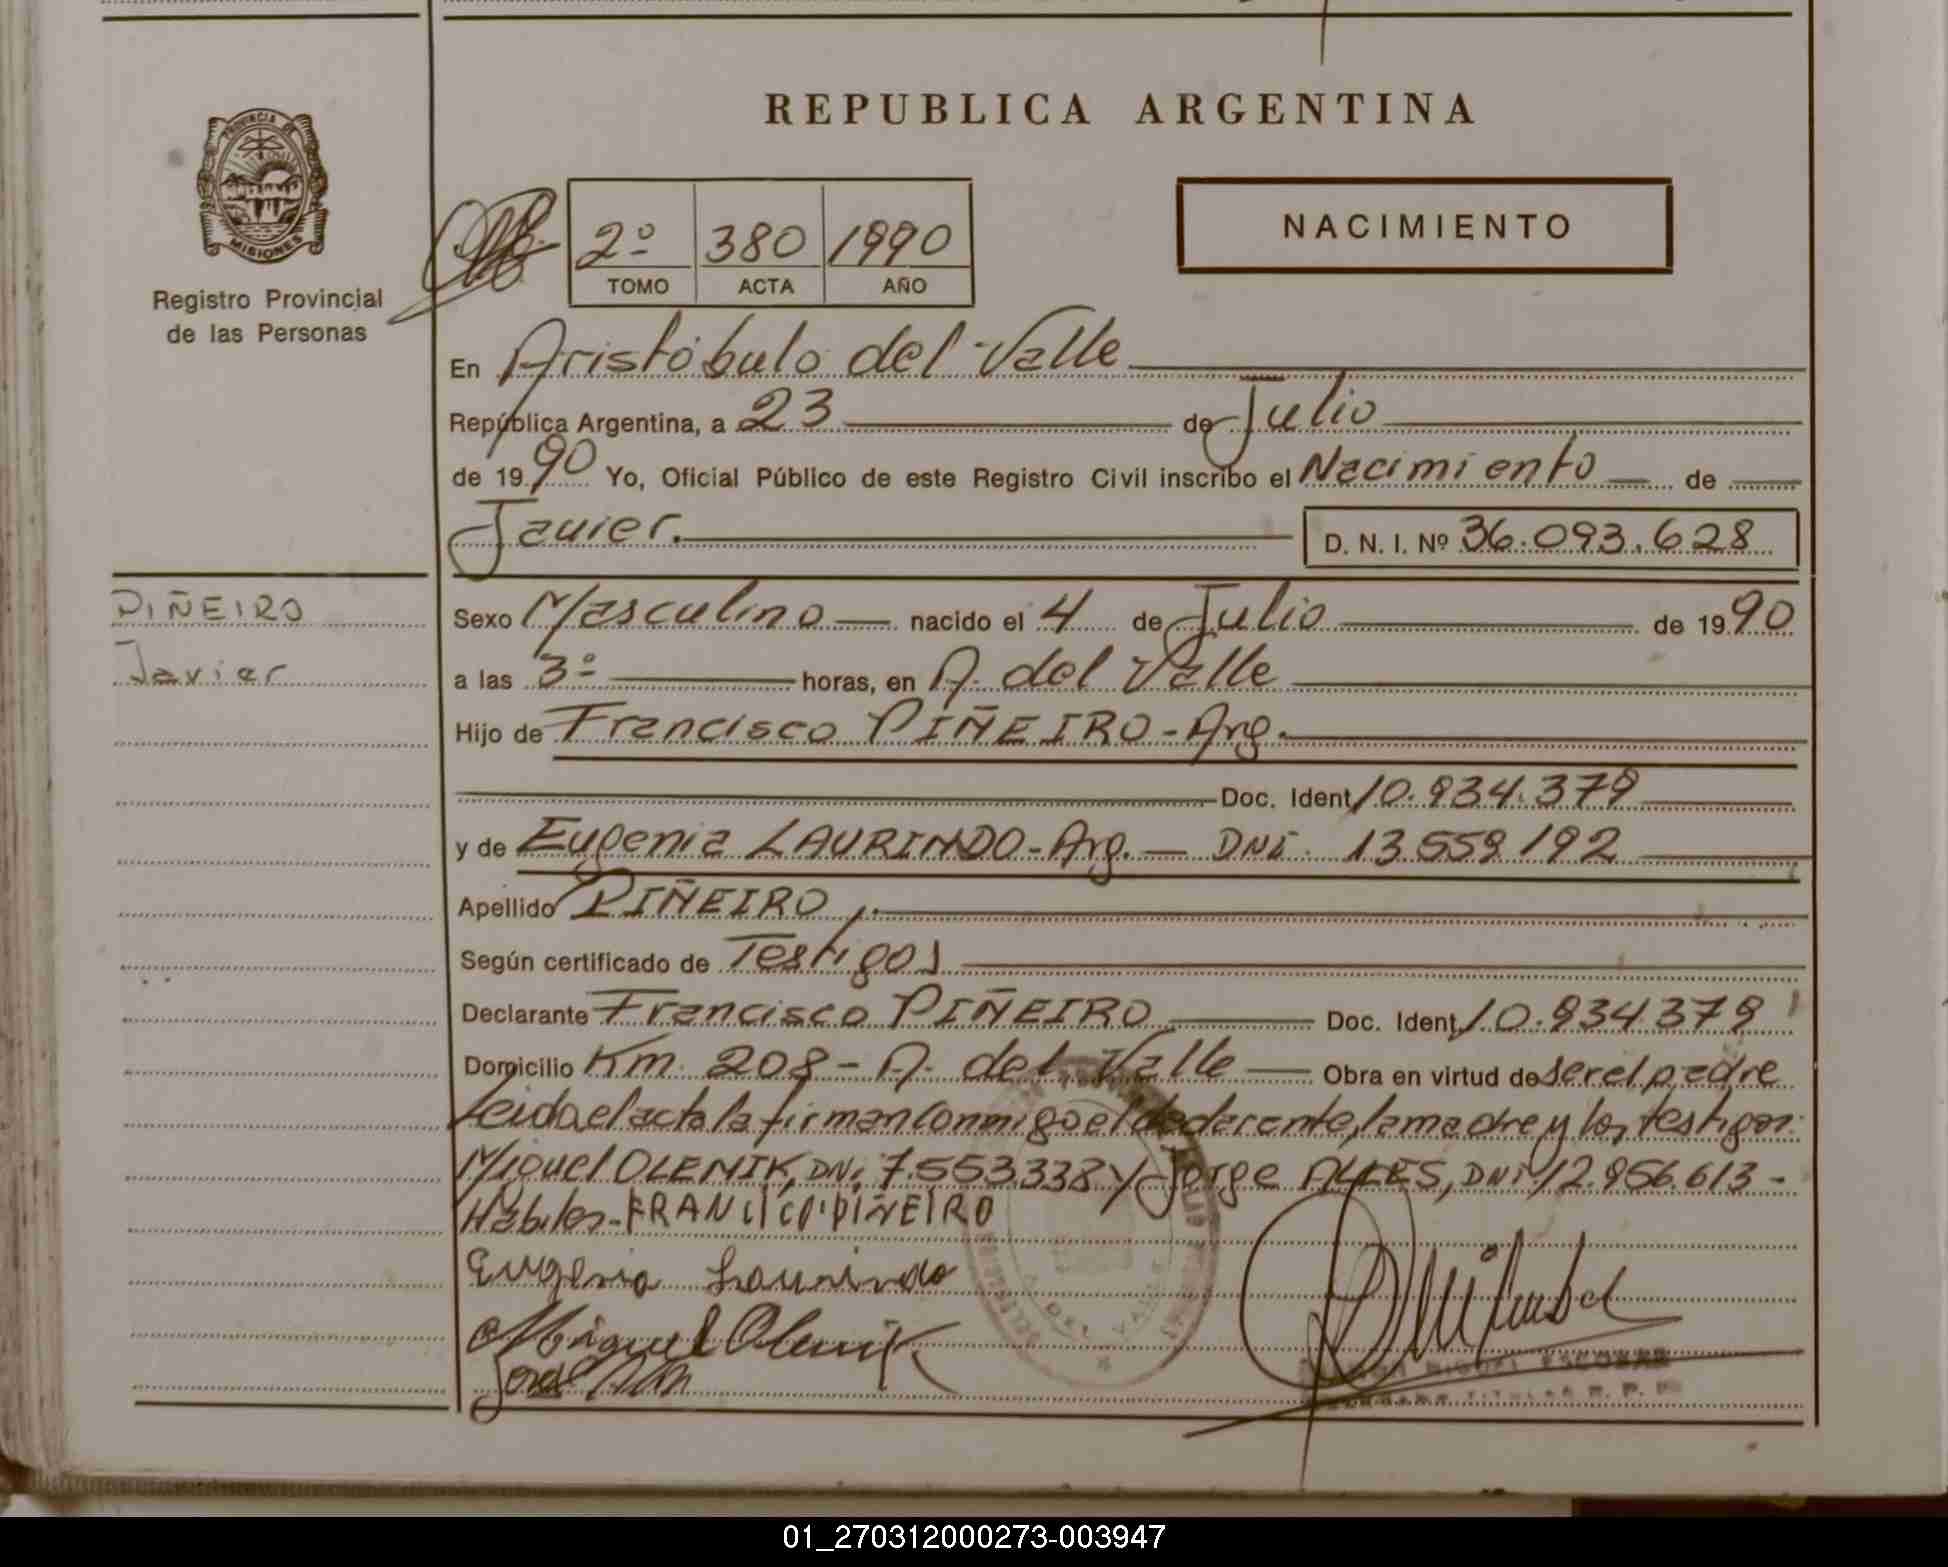 REPUBLICA ARGENTINA
PROVINCIA DE
MISIONES
Registro Provincial
de las Personas
2º 380 1990
TOMO ACTA AÑO
NACIMIENTO
En Aristóbulo del Valle
República Argentina, a 23 de Julio
de 1990 Yo, Oficial Público de este Registro Civil inscribo el Nacimiento de
Javier. D. N. I. Nº 36.093.628
PIÑEIRO
Javier
Sexo Masculino nacido el 4 de Julio de 1990
a las 3º horas, en A. del Valle
Hijo de Francisco PIÑEIRO - Arg.
Doc. Ident 10.934.379
y de Eugenia LAURINDO - Arg. — DNi. 13.559.192
Apellido PIÑEIRO
Según certificado de Testigos
Declarante Francisco PIÑEIRO Doc. Ident 10.934.379
Domicilio Km. 208 - A. del Valle Obra en virtud de ser el padre
Leida el acta la firman conmigo el declarante, la madre y los testigos:
Miguel OLENIK, DNi 7.553.338 y Jorge ALLES, DNi. 12.956.613 -
Habiles - FRANCISCO PIÑEIRO
Eugenia Laurindo
Miguel Olenik
MIGUEL ESCOBAR
TITULAR R. P. P.
01_270312000273-003947